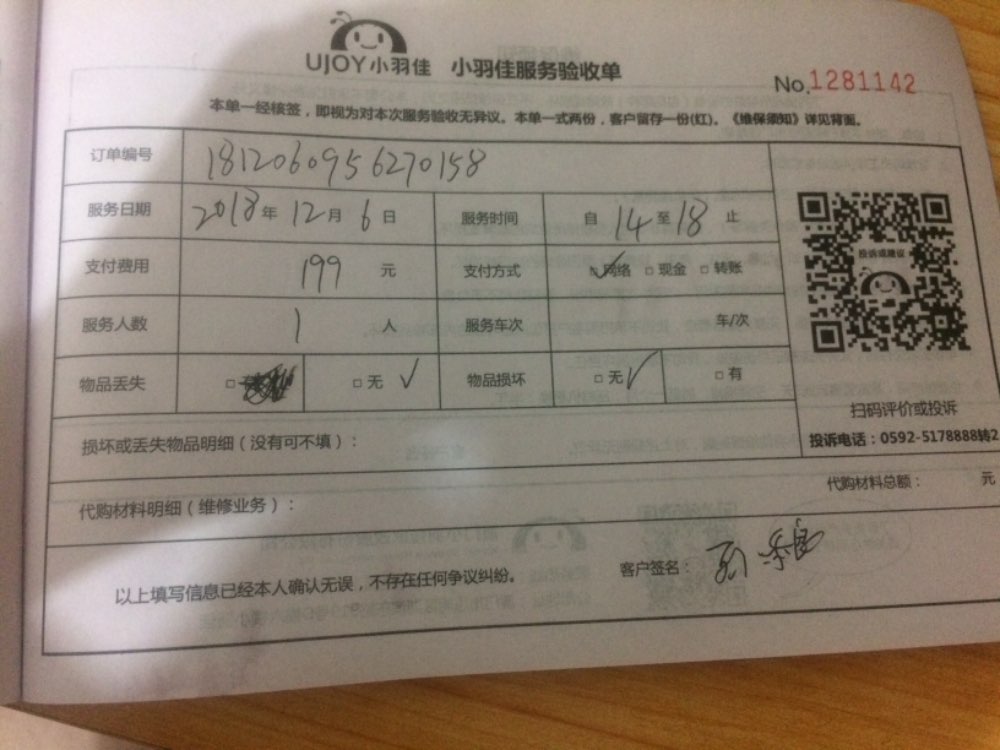 UJOY小羽佳 小羽佳服务验收单
No.1281142
本单一经核签，即视为对本次服务验收无异议。本单一式两份，客户留存一份(红)。《维保须知》详见背面。
订单编号 1812060956270158
服务日期 2018年12月6日 服务时间 自14至18止
支付费用 199元 支付方式 ☑网络 □现金 □转账
服务人数 1人 服务车次 车/次
物品丢失 □ □无 ✓ 物品损坏 □无 ✓ □有
投诉或建议
扫码评价或投诉
投诉电话：0592-5178888转2
损坏或丢失物品明细（没有可不填）：
代购材料明细（维修业务）： 代购材料总额： 元
以上填写信息已经本人确认无误，不存在任何争议纠纷。 客户签名：